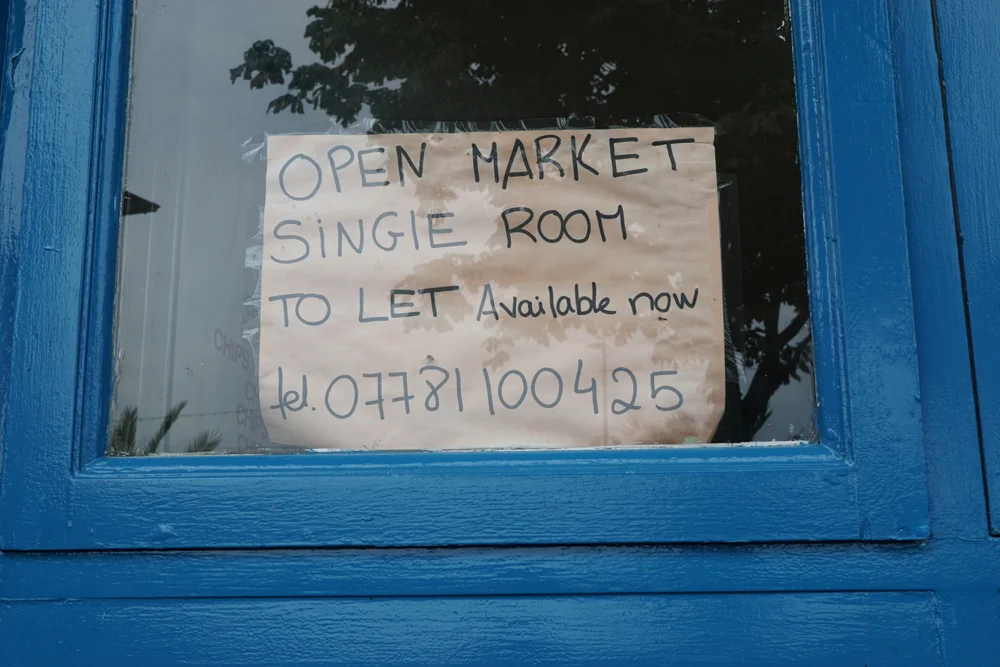 OPEN MARKET
SiNGlE ROOM
TO LET Available now
tel. 07781 100425